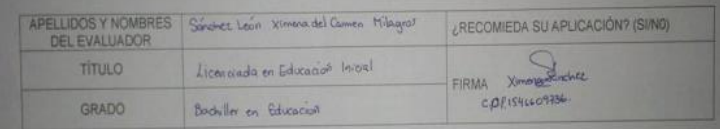 APELLIDOS Y NOMBRES DEL EVALUADOR
Sánchez León Ximena del Carmen Milagros
¿RECOMIEDA SU APLICACIÓN? (SI/NO)
TÍTULO
Licenciada en Educación Inicial
FIRMA Ximena Sánchez
C.P.P. 1546609736.
GRADO
Bachiller en Educación